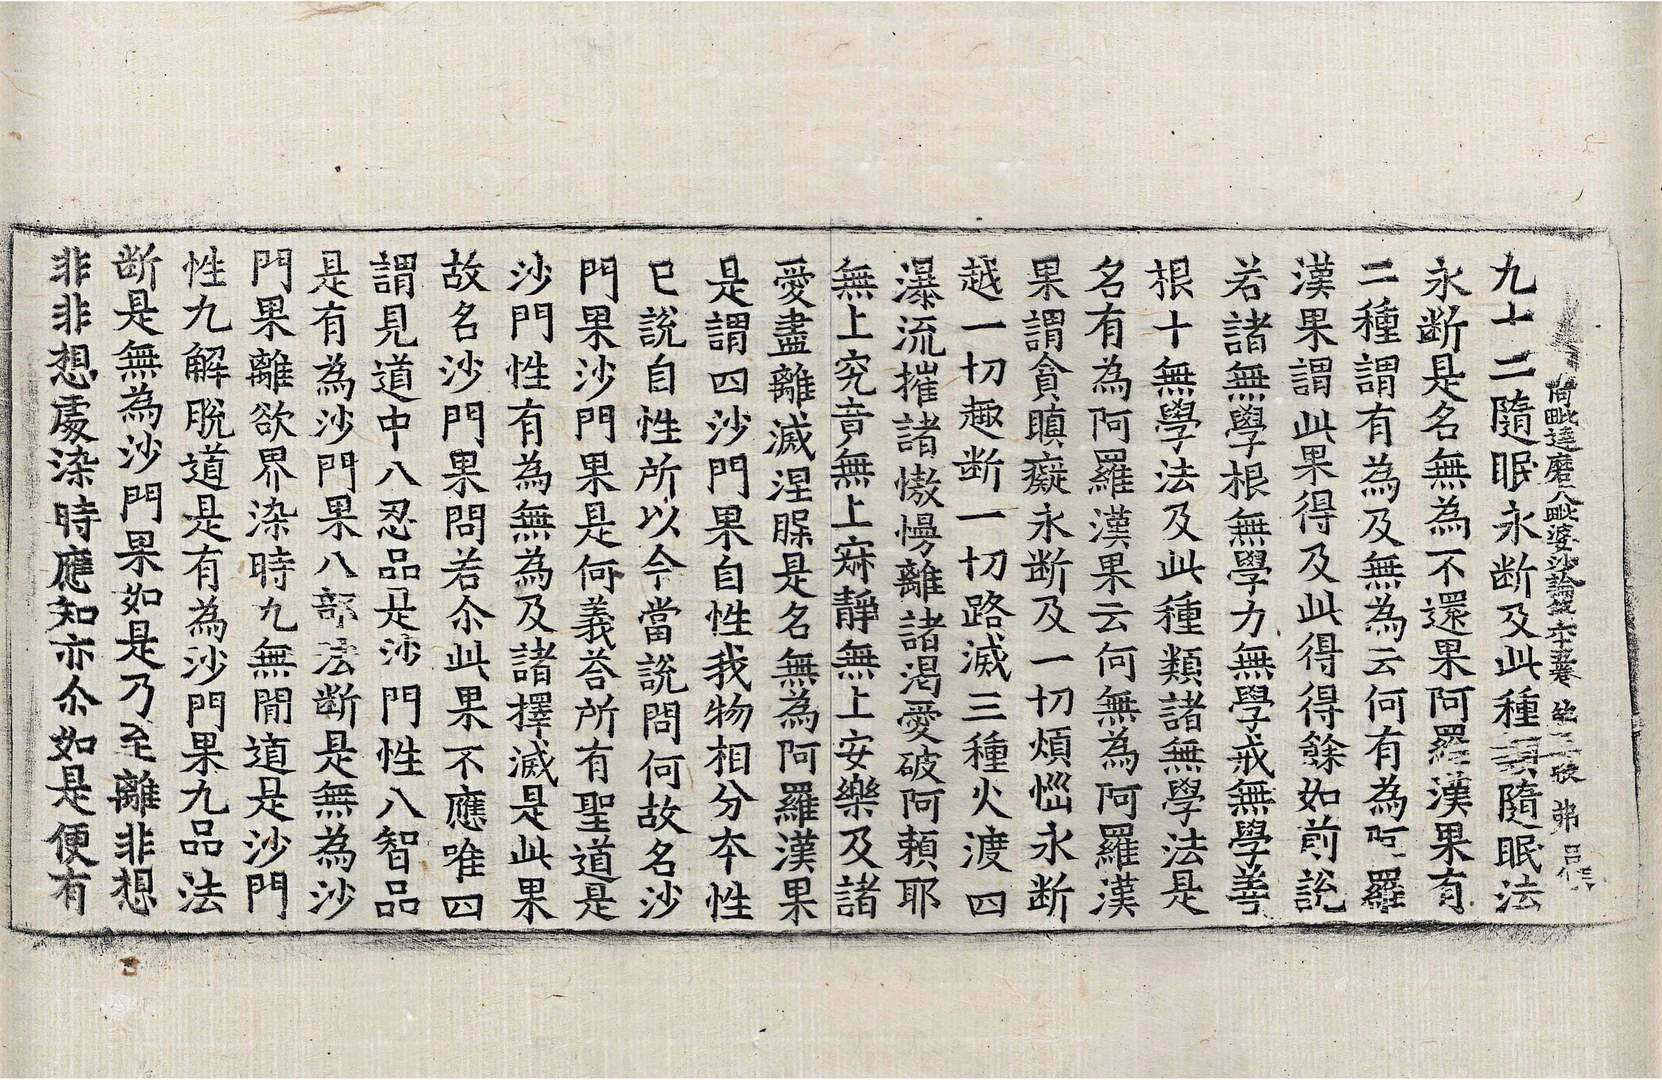 阿毗達磨大毗婆沙論第六十五卷 第二張 弟
九十二隨眠永断及此種類隨眠法
永断是名無為不還果阿羅漢果有
二種謂有為及無為云何有為阿羅
漢果謂此果得及此得得餘如前說
若諸無學根無學力無學戒無學善
根十無學法及此種類諸無學法是
名有為阿羅漢果云何無為阿羅漢
果謂貪瞋癡永断及一切煩惱永断
越一切趣断一切路滅三種火渡四
瀑流摧諸慠慢離諸渴愛破阿頼耶
無上究竟無上寂靜無上安樂及諸
愛盡離滅涅槃是名無為阿羅漢果
是謂四沙門果自性我物相分本性
已說自性所以今當說問何故名沙
門果沙門果是何義荅所有聖道是
沙門性有為無為及諸擇滅是此果
故名沙門果問若尒此果不應唯四
謂見道中八忍品是沙門性八智品
是有為沙門果八部法断是無為沙
門果離欲界染時九無閒道是沙門
性九解脫道是有為沙門果九品法
断是無為沙門果如是乃至離非想
非非想處染時應知亦尒如是便有